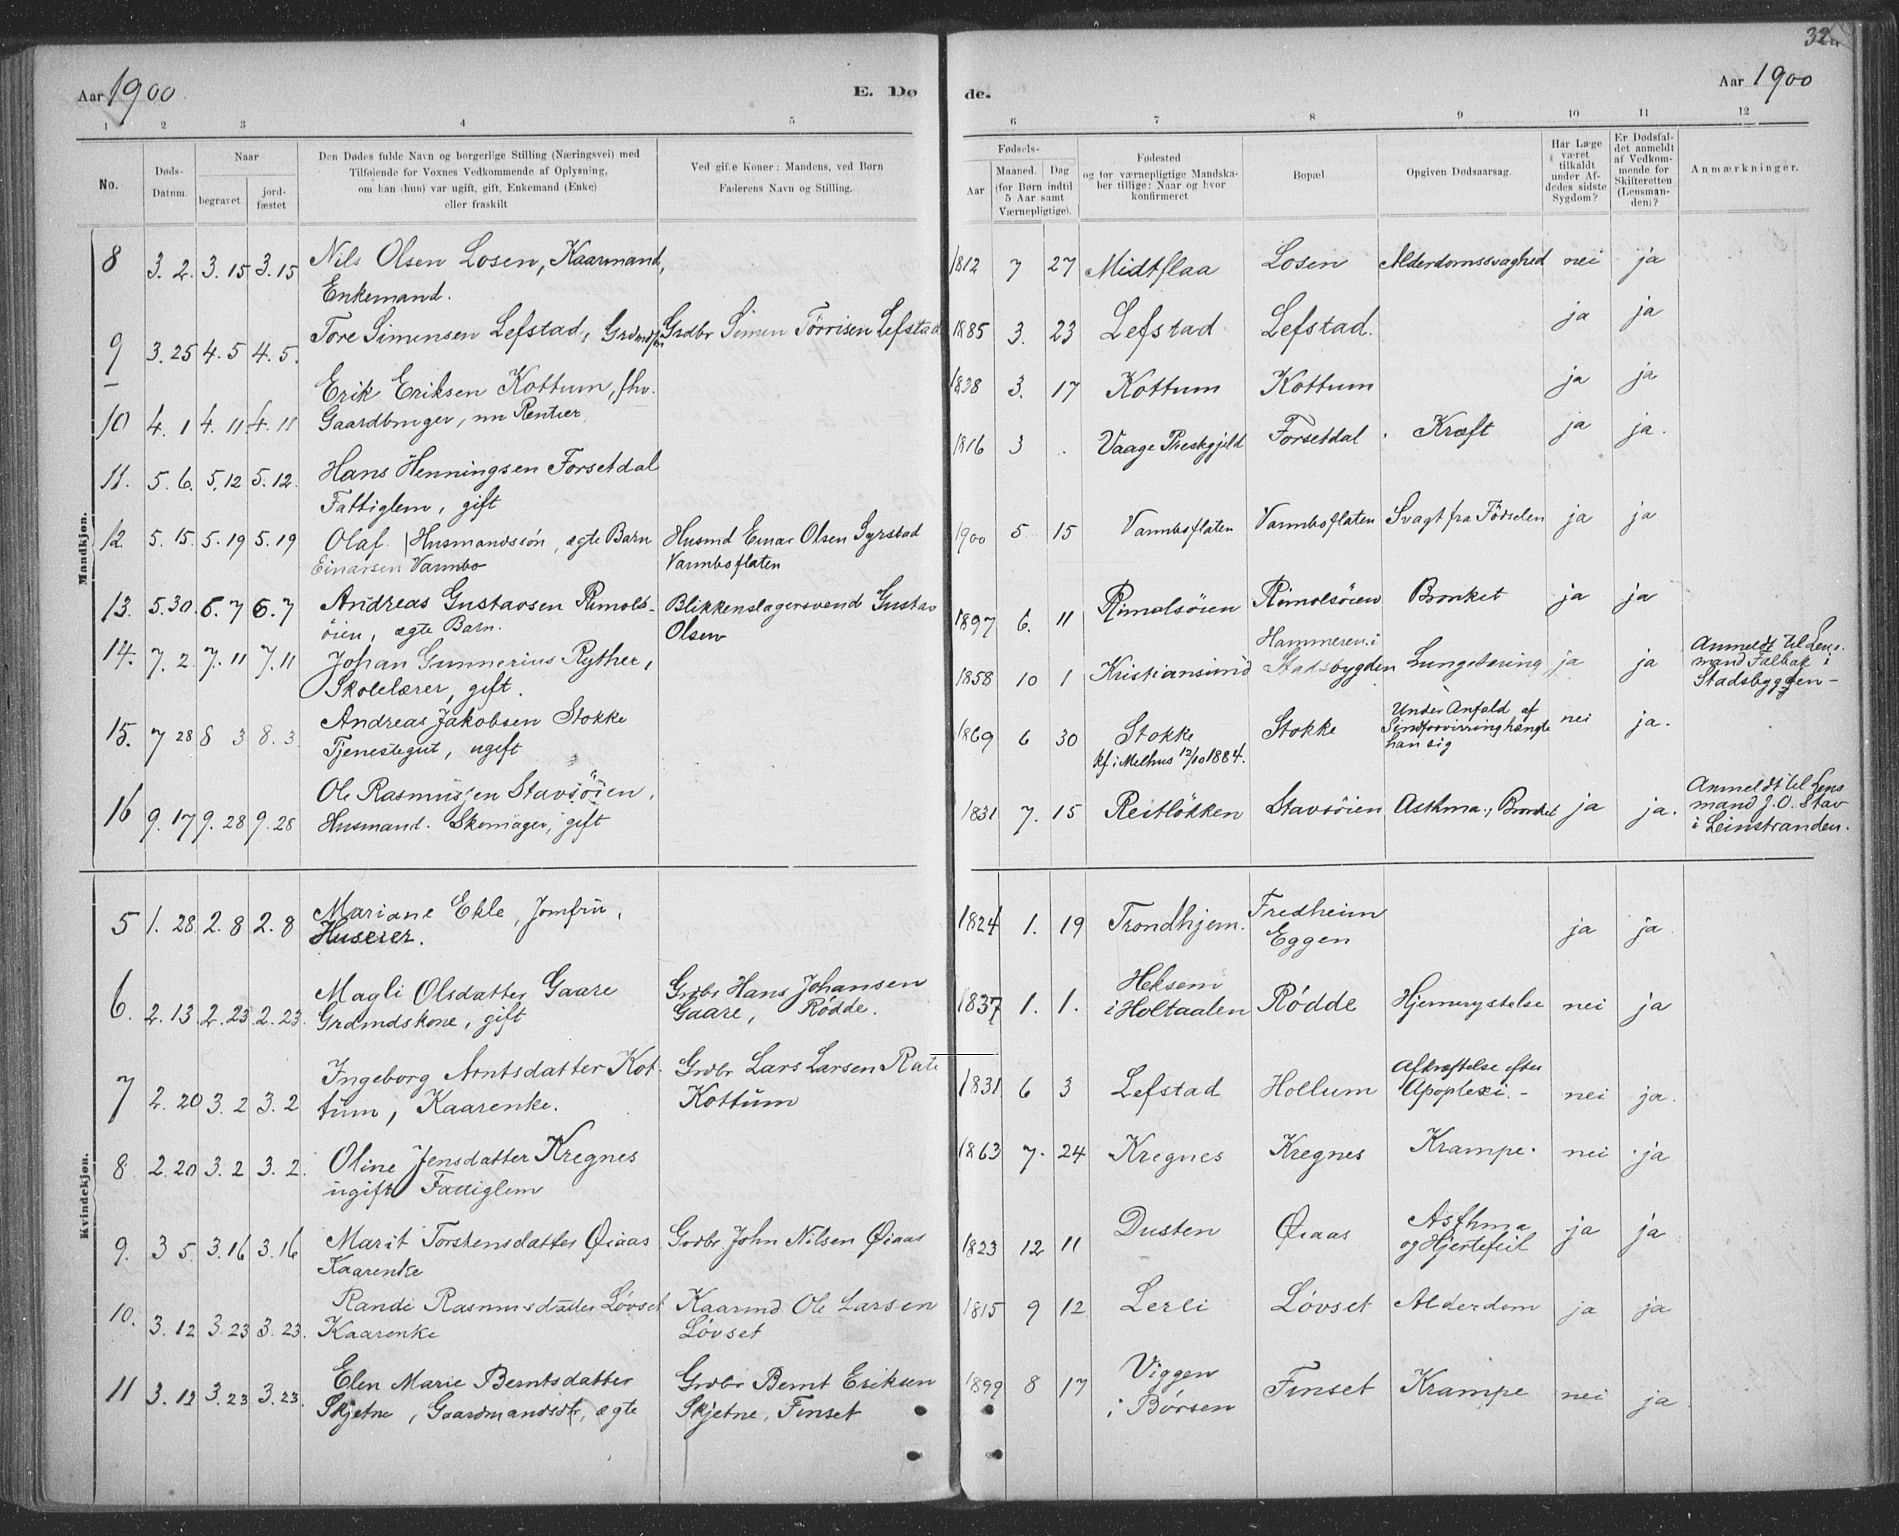 32
Aar 1900
E. Dø
de.
Aar 1900
1 2 3 4 5 6 7 8 9 10 11 12
No.
Døds-
Datum.
Naar
begravet
jord-
fæstet
Den Dødes fulde Navn og borgerlige Stilling (Næringsvei) med
Tilføiende for Voxnes Vedkommende af Oplysning,
om han (hun) var ugift, gift, Enkemand (Enke)
eller fraskilt
Ved gifte Koner: Mandens, ved Børn
Faderens Navn og Stilling.
Fødsels-
Aar
Maaned. Dag
(for Børn indtil
5 Aar samt
Værnepligtige).
Fødested
og for værnepligtige Mandska-
ber tillige: Naar og hvor
konfirmeret
Bopæl.
Opgiven Dødsaarsag.
Har Læge
været
tilkaldt
under Af-
dødes sidste
Sygdom?
Er Dødsfal-
det anmeldt
af Vedkom-
mende for
Skifteretten
(Lensman-
den)?
Anmærkninger.
Mandkjøn.
8 3. 2. 3. 15 3. 15 Nils Olsen Losen, Kaarmand, 1812 7 27 Midtflaa Losen Alderdomssvaghed nei ja
Enkemand.
9 3. 25 4. 5 4. 5. Tore Simensen Lefstad, Grdbr Simen Törrisen Lefstad 1885 3. 23 Lefstad Lefstad. ja ja
10 4. 1 4. 11 4. 11 Erik Eriksen Kottum, fhv. 1838 3. 17 Kottum Kottum ja ja
Gaardbruger, nu Rentier
11. 5. 6. 5. 12 5. 12. Hans Henningsen Forsetdal 1816 3 . Vaage Prestgjeld Forsetdal Kræft ja ja.
Fattiglem, gift
12. 5. 15. 5. 19 5. 19 Olaf Husmandssön, ægte Barn Husmd Einar Olsen Syrstad 1900 5 15 Varmboflaten Varmboflaten Svagt fra Födselen ja ja
Einarsen Varmbo Varmboflaten
13. 5. 30. 6. 7 6. 7 Andreas Gustavsen Rimols- Blikkenslagersvend Gustav 1897 6. 11 Rimolsöien Rimolsöien Bronket ja ja
öien, ægte Barn. Olsen
14. 7. 2. 7. 11 7. 11 Johan Gunnerius Ryther, 1858 10 1 Kristiansund Hammeren i Stadsbygden Lungetæring ja ja Anmeldt til Lens-
Skolelærer, gift. mand Falbak i
Stadsbygden -
15. 7 28 8 3 8. 3 Andreas Jakobsen Stokke 1869 6 30 Stokke Stokke Under Anfald af nei ja.
Tjenestegut, ugift kf. i Melhus 12/10 1884. Sindforvirring hængte
han sig
16 9. 17 9. 28 9. 28 Ole Rasmussen Stavsöien, 1831 7. 15 Reitlökken Stavsöien Asthma, Bronket ja ja. Anmeldt til Lens
Husmand. Skomager, gift mand J. O. Stav
i Leinstranden.
Kvindekjøn.
5 1. 28 2. 8 2. 8 Mariane Ekle, Jomfru, 1824 1. 19 Trondhjem. Fredheim ja ja.
Huseier. Eggen
6. 2. 13. 2. 23 2. 23. Magli Olsdatter Gaare Grdbr Hans Johansen 1837 1. 1. Heksem Rödde Hjernerystelse nei ja
Grdmdskone, gift Gaare, Rödde. i Holtaalen
7 2. 20 3. 2 3. 2 Ingeborg Arntsdatter Kot- Grdbr Lars Larsen 1831 6 3 Lefstad Hollum Afkræftelse efter nei ja.
tum, Kaarenke. Kottum Apoplexi. -
8 2. 20 3. 2 3. 2. Oline Jensdatter Kregnes 1863 7. 24 Kregnes Kregnes Krampe. nei ja
ugift Fattiglem
9. 3 5. 3. 16 3. 16 Marit Torstensdatter Øiaas Grdbr. John Nilsen Øiaas 1823 12 11 Dusten Øiaas Asthma ja ja
Kaarenke og Hjertefeil
10. 3. 12 3. 23 3. 23. Randi Rasmusdatter Lövset Kaarmd Ole Larsen 1815 9 12 Lerli Lövset Alderdom ja ja
Kaarenke Lövset
11 3. 12 3. 23 3. 23. Elen Marie Berntsdatter Grdbr Bernt Eriksen 1899 8 17 Viggen Finset Krampe nei ja
Skjetne, Gaardmandsdtr, ægte Skjetne, Finset i Børsen